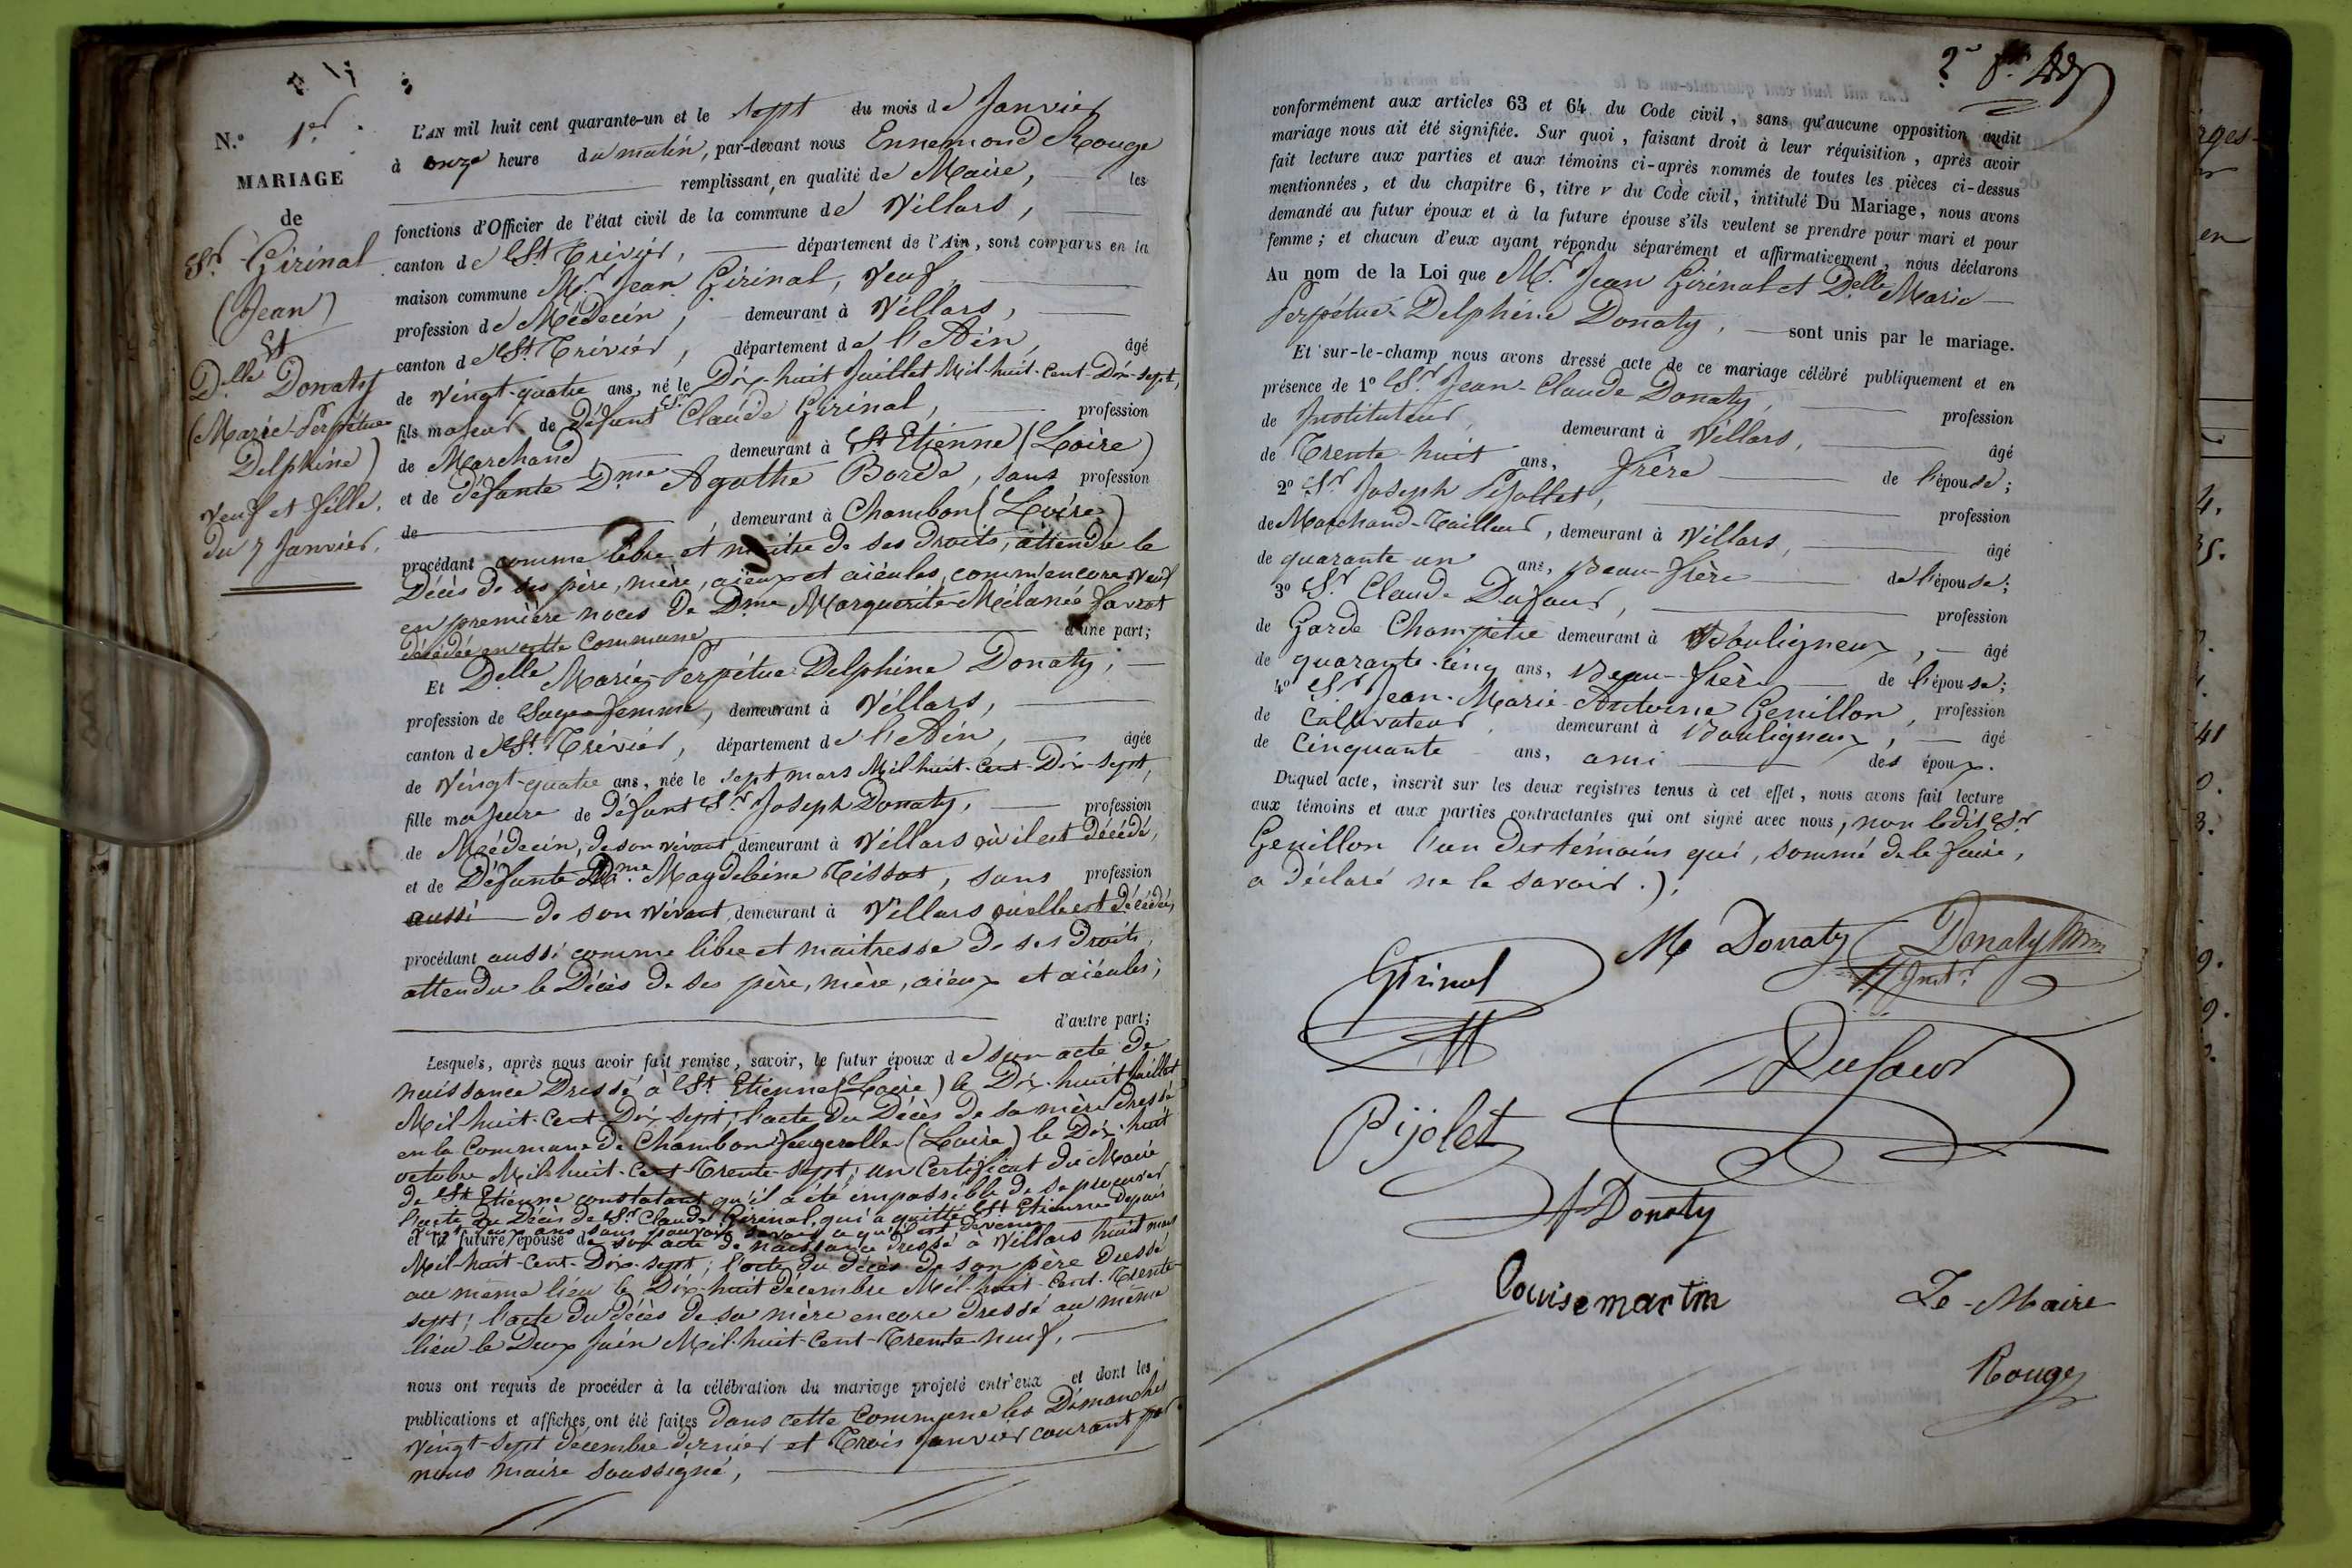 N.° 1.er
MARIAGE
de
Sr. Girinal
(Jean)
Et
D.elle Donaty
(Marie-Perpétue
Delphine)
veuf et fille.
du 7 Janvier.
L'AN mil huit cent quarante-un et le sept du mois de Janvier
à onze heure du matin, par-devant nous Ennemond Rouge
remplissant, en qualité de Maire, les
fonctions d'Officier de l'état civil de la commune de Villars,
canton de St. Trivier, département de l'Ain, sont comparus en la
maison commune Mr. Jean Girinal, Veuf,
profession de Médecin, demeurant à Villars,
canton de St. Trivier, département de l'Ain, âgé
de vingt-quatre ans, né le Dix-huit Juillet Mil-huit-Cent-Dix-sept,
fils majeur de défunt Sr. Claude Girinal, profession
de Marchand, demeurant à St. Etienne (Loire)
et de défunte D.me Agathe Borde, sans profession
de , demeurant à Chambon (Loire)
procédant comme libre et maitre de ses droits, attendu le
Décès de ses père, mère, aieux et aiéules, comm'encore veuf
en première noces de D.me Marguerite-Mélanie favrot
décédée en cette Commune, d'une part;
Et D.elle Marie-Perpétue-Delphine Donaty,
profession de Sage-femme, demeurant à Villars,
canton de St. Trivier, département de l'Ain, âgée
de vingt-quatre ans, née le sept mars Mil huit-Cent-Dix-sept,
fille majeure de défunt Sr. Joseph Donaty, profession
de Médecin, de son vivant demeurant à Villars où il est décédé,
et de Défunte D.me Magdeleine Tissot, sans profession
aussi de son vivant, demeurant à Villars où elle est décédée,
procédant aussi comme libre et maitresse de ses droits,
attendu le Décès de ses père, mère, aieux et aiéules;
d'autre part;
Lesquels, après nous avoir fait remise, savoir, le futur époux de son acte de
naissance Dressé à St. Etienne (Loire) le Dix-huit Juillet
Mil-huit-Cent-Dix-sept; l'acte du Décès de sa mère dressé
en la Commune de Chambon-feugerolle (Loire) le Dix-huit
octobre Mil-huit-Cent-Trente-sept; un Certificat du Maire
de St. Etienne constatant qu'il a été impossible de se procurer
l'acte du Décès de Sr. Claude Girinal, qui a quitté St. Etienne depuis
vingt-deux ans sans pouvoir savoir ce qu'il est devenu
et la future épouse de son acte de naissance dressé à Villars huit mars
Mil-huit-Cent-Dix-sept; l'acte du décès de son père Dressé
au même lieu le Dix-huit décembre Mil-huit-Cent-Trente-
sept; l'acte du décès de sa mère encore dressé au même
lieu le Deux Juin Mil-huit-Cent-Trente-neuf,
nous ont requis de procéder à la célébration du mariage projeté entr'eux et dont les
publications et affiches, ont été faites Dans cette Commune les Dimanches
vingt-sept décembre dernier et Trois Janvier courant par
nous Maire soussigné,
conformément aux articles 63 et 64 du Code civil, sans qu'aucune opposition audit
mariage nous ait été signifiée. Sur quoi, faisant droit à leur réquisition, après avoir
fait lecture aux parties et aux témoins ci-après nommés de toutes les pièces ci-dessus
mentionnées, et du chapitre 6, titre v du Code civil, intitulé Du Mariage, nous avons
demandé au futur époux et à la future épouse s'ils veulent se prendre pour mari et pour
femme; et chacun d'eux ayant répondu séparément et affirmativement, nous déclarons
Au nom de la Loi que Mr. Jean Girinal et D.elle Marie
Perpétue-Delphine Donaty, sont unis par le mariage.
Et sur-le-champ nous avons dressé acte de ce mariage célébré publiquement et en
présence de 1° Sr. Jean-Claude Donaty, profession
de Instituteur, demeurant à Villars, âgé
de Trente-huit ans, frère de l'épouse;
2° Sr. Joseph Pijollet, profession
de Marchand-Tailleur, demeurant à Villars, âgé
de quarante-un ans, Beau-frère de l'épouse;
3° Sr. Claude Dufour, profession
de Garde Champêtre demeurant à Bouligneux, âgé
de quarante-cinq ans, Beau-frère de l'épouse;
4° Sr. Jean-Marie-Antoine Genillon, profession
de Cultivateur, demeurant à Bouligneux, âgé
de Cinquante ans, ami des époux.
Duquel acte, inscrit sur les deux registres tenus à cet effet, nous avons fait lecture
aux témoins et aux parties contractantes qui ont signé avec nous, non ledit Sr.
Genillon l'un des témoins qui, sommé de le faire,
a déclaré ne le savoir.);
Girinal
M Donaty
Donaty
Instr.
Dufour
Pijolet
A Donaty
Louise martin
Le Maire
Rouge